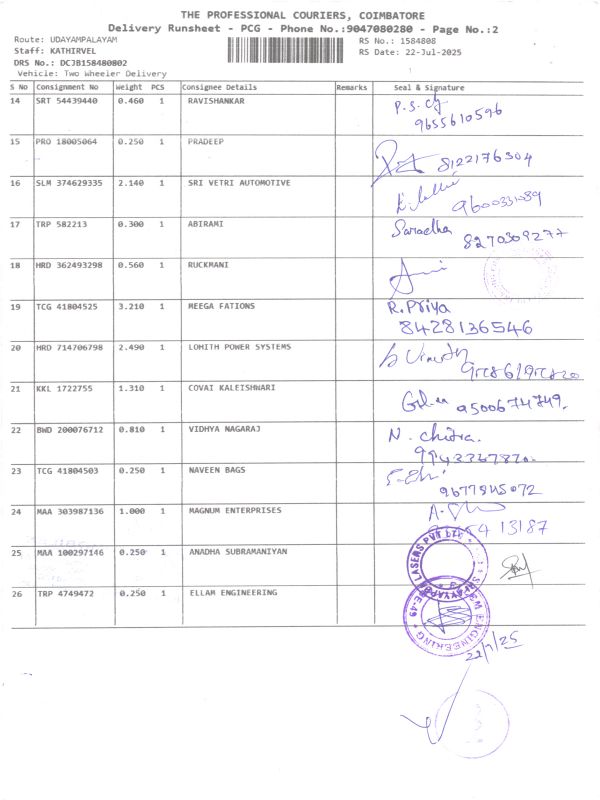 THE PROFESSIONAL COURIERS, COIMBATORE
Delivery Runsheet - PCG - Phone No.:9047080280 - Page No.:2
Route: UDAYAMPALAYAM RS No.: 1584808
Staff: KATHIRVEL RS Date: 22-Jul-2025
DRS No.: DCJB158480802
Vehicle: Two Wheeler Delivery
S No Consignment No Weight PCS Consignee Details Remarks Seal & Signature
14 SRT 54439440 0.460 1 RAVISHANKAR
9655610596
15 PRO 18005064 0.250 1 PRADEEP 8122176304
16 SLM 374629335 2.140 1 SRI VETRI AUTOMOTIVE
9600331089
17 TRP 582213 0.300 1 ABIRAMI Saradha 8270309277
18 HRD 362493298 0.560 1 RUCKMANI
19 TCG 41804525 3.210 1 MEEGA FATIONS R.Priya
8428136546
20 HRD 714706798 2.490 1 LOHITH POWER SYSTEMS
21 KKL 1722755 1.310 1 COVAI KALEISHWARI 9500674749.
22 BWD 200076712 0.810 1 VIDHYA NAGARAJ N. chitra.
23 TCG 41804503 0.250 1 NAVEEN BAGS
24 MAA 303987136 1.000 1 MAGNUM ENTERPRISES
13187
25 MAA 100297146 0.250 1 ANADHA SUBRAMANIYAN LASERS PVT LTD
26 TRP 4749472 0.250 1 ELLAM ENGINEERING ENGINEERING
22/7/25